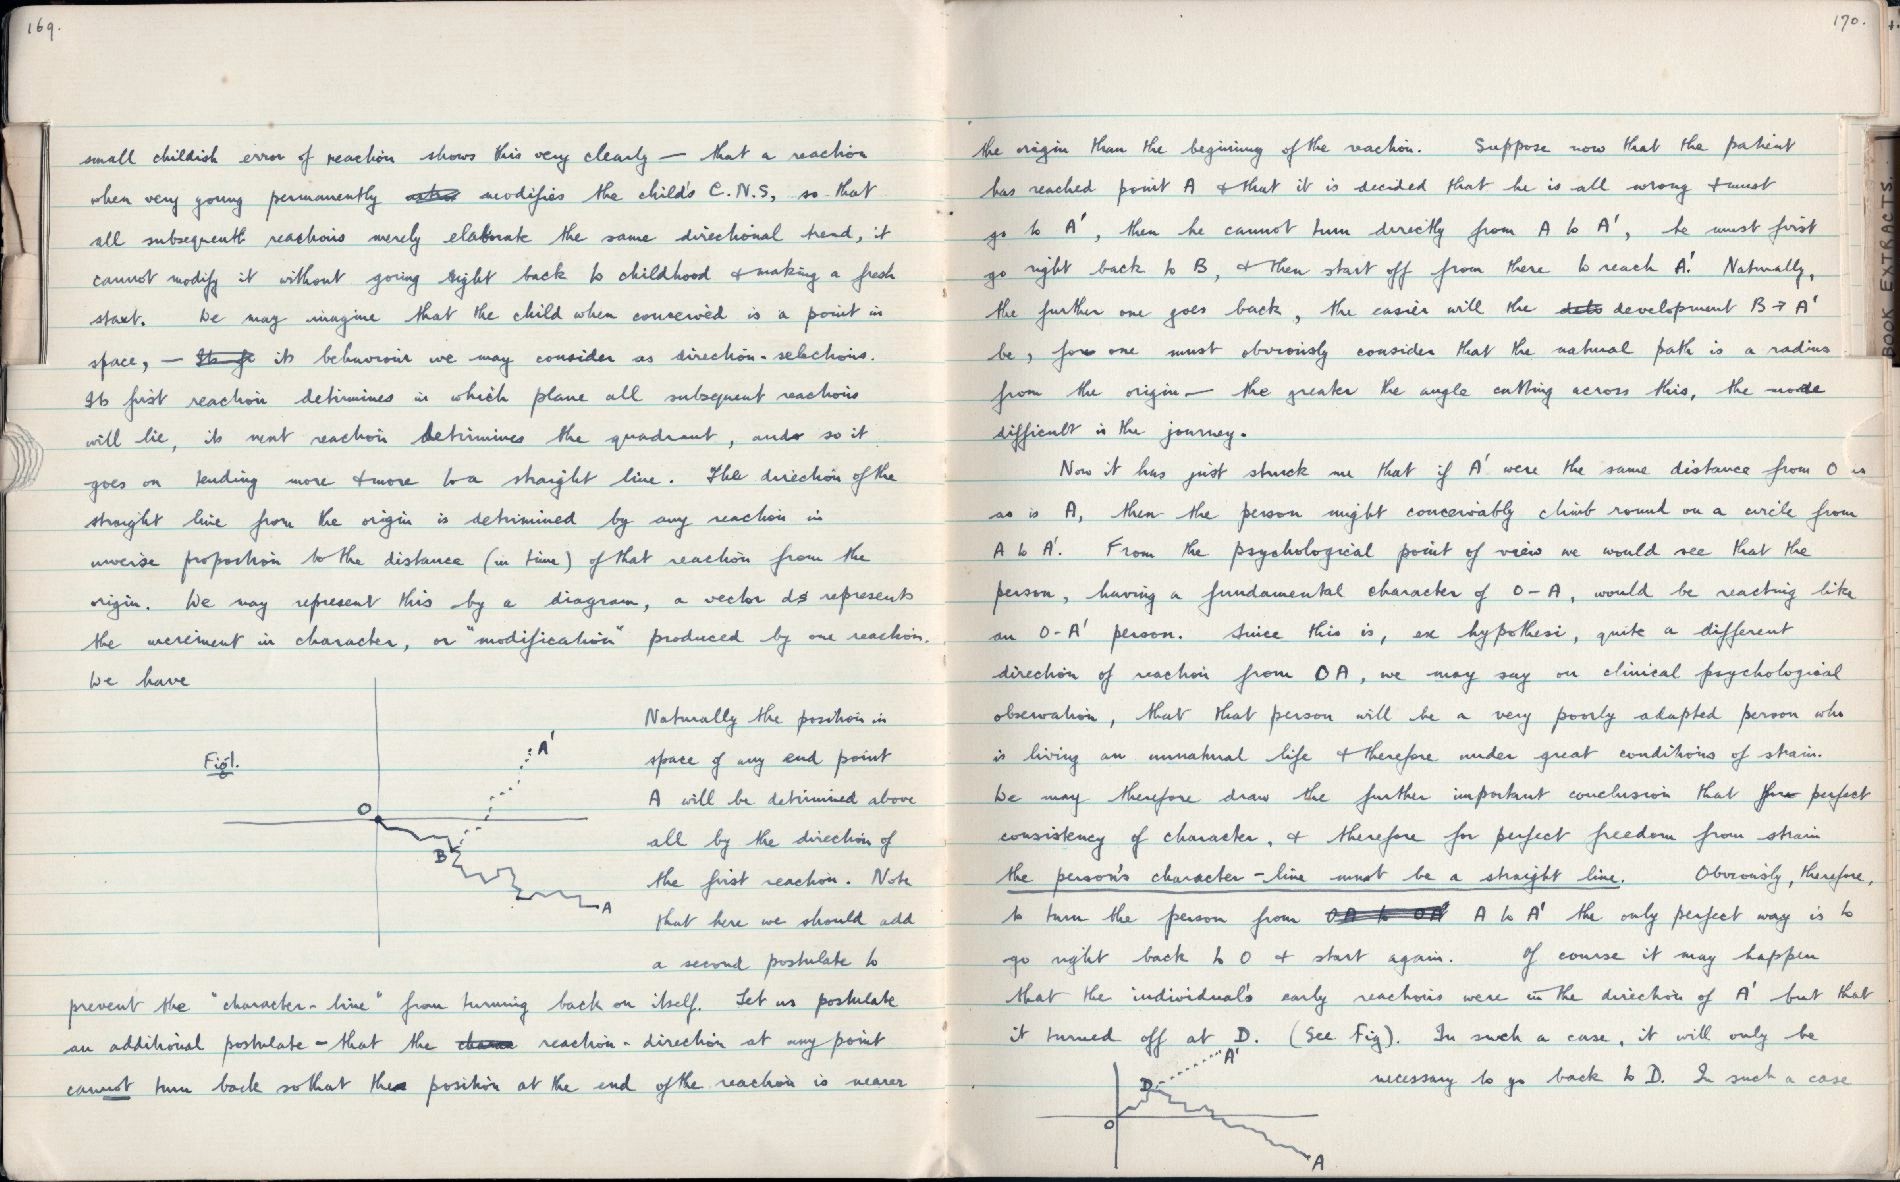 169.
small childish error of reaction shows this very clearly — that a reaction
when very young permanently modifies the child's C.N.S, so that
all subsequent reactions merely elaborate the same directional trend, it
cannot modify it without going right back to childhood & making a fresh
start. We may imagine that the child when conceived is a point in
space, — its behaviour we may consider as direction-selections.
Its first reaction detirmines in which plane all subsequent reactions
will lie, its next reaction detirmines the quadrant, and so it
goes on tending more & more to a straight line. The direction of the
straight line from the origin is detirmined by any reaction in
inverse proportion to the distance (in time) of that reaction from the
origin. We may represent this by a diagram, a vector ds represents
the increment in character, or "modification" produced by one reaction.
We have
Fig 1.
O
B
A
A'
Naturally the position in
space of any end point
A will be detirmined above
all by the direction of
the first reaction. Note
that here we should add
a second postulate to
prevent the "character-line" from turning back on itself. Let us postulate
an additional postulate - that the reaction-direction at any point
cannot turn back so that the position at the end of the reaction is nearer
170.
the origin than the begining of the reaction. Suppose now that the patient
has reached point A & that it is decided that he is all wrong & must
go to A', then he cannot turn directly from A to A', he must first
go right back to B, & then start off from there to reach A'. Naturally,
the further one goes back, the easier will the development B → A'
be, for one must obviously consider that the natural path is a radius
from the origin — the greater the angle cutting across this, the more
difficult is the journey.
Now it has just struck me that if A' were the same distance from O
as is A, then the person might conceivably climb round on a circle from
A to A'. From the psychological point of view we would see that the
person, having a fundamental character of O-A, would be reacting like
an O-A' person. Since this is, ex hypothesi, quite a different
direction of reaction from OA, we may say on clinical psychological
observation, that that person will be a very poorly adapted person who
is living an unnatural life & therefore under great conditions of strain.
We may therefore draw the further important conclusion that for perfect
consistency of character, & therefore for perfect freedom from strain
the person's character-line must be a straight line. Obviously, therefore,
to turn the person from OA to OA' A to A' the only perfect way is to
go right back to O & start again. Of course it may happen
that the individual's early reactions were in the direction of A' but that
it turned off at D. (See Fig). In such a case, it will only be
necessary to go back to D. In such a case
O
D
A'
A
BOOK EXTRACTS.